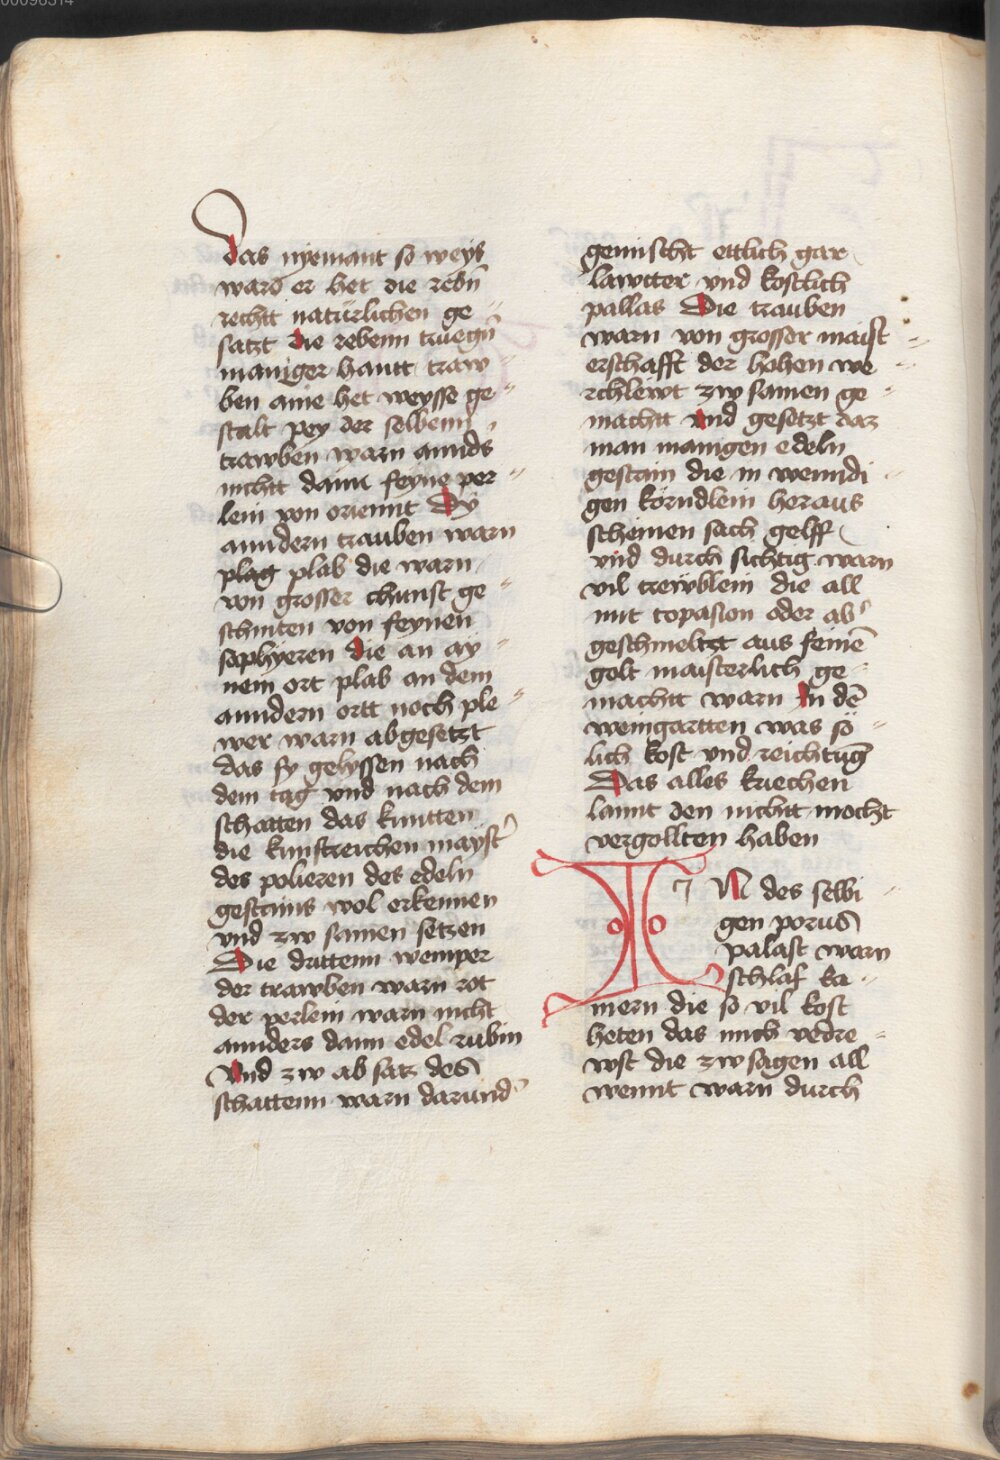 00098514
Das nyemant so weys
ward er het die rebn̄
rechtt natürlichen ge
satzt die rebenn truegn̄
maniger hantt traw
ben aine het weysse ge-
stalt pey der selbenn
trawben warn annds
nichtt dann feyne per-
lein von orient Dy
anndern trauben warn
plag plab die warn
von grosser chunst ge-
schniten von feynen
saphyeren die an ay-
nem ort plab an dem
anndern ortt noch ple-
wer warn abgesetzt
das sy gelyssen nach
dem tag vnd nach dem
schatten das kuntten
die kunstreichen mayst᾿
des polieren des edeln
gestains wol erkennen
vnd zw samen setzen
Die drittenn wemper
der trawben warn rot
der perlein warn nicht
annders dann edel rubin
Vnd zw ab satz des
schattenn warn darund᾿
gemischt ettlich gar
lawtter vnd kostlich
pallas Die trauben
warn von grosser maist-
erschafft der hohen we-
rchlewt zw samen ge-
machtt vnd gesetzt daz
man manigen edeln
gestain die in wennidi-
gen körndlein heraus
scheinen sach gelff
vnd durch sichtig warn
vil trewblein die all
mit topasion oder ab᾿
geschmeltzt aus feinē
golt maisterlich ge-
machtt warn In dē
weingartten was sö-
lich kost vnd reichtūg
Das alles kriechen
lannt den nichtt mocht
vergollten haben
IN des selbi-
gen porus
palast warn
schlaf ka-
mern die so vil kost
heten das mich verdre-
wst die zw sagen all
wennt warn durch